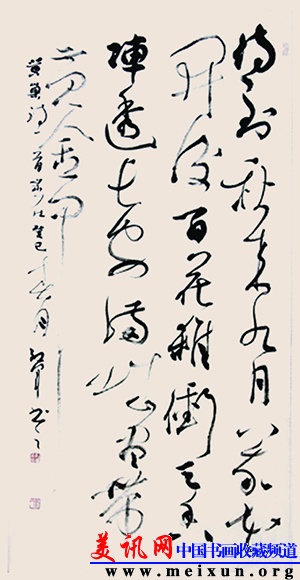 待到秋来九月八我花
开后百花殺衝天香
陣透长安满城尽带
黄金甲
黄巢诗一首 癸巳 月 书
美讯网 中国书画收藏频道
www.meixun.org